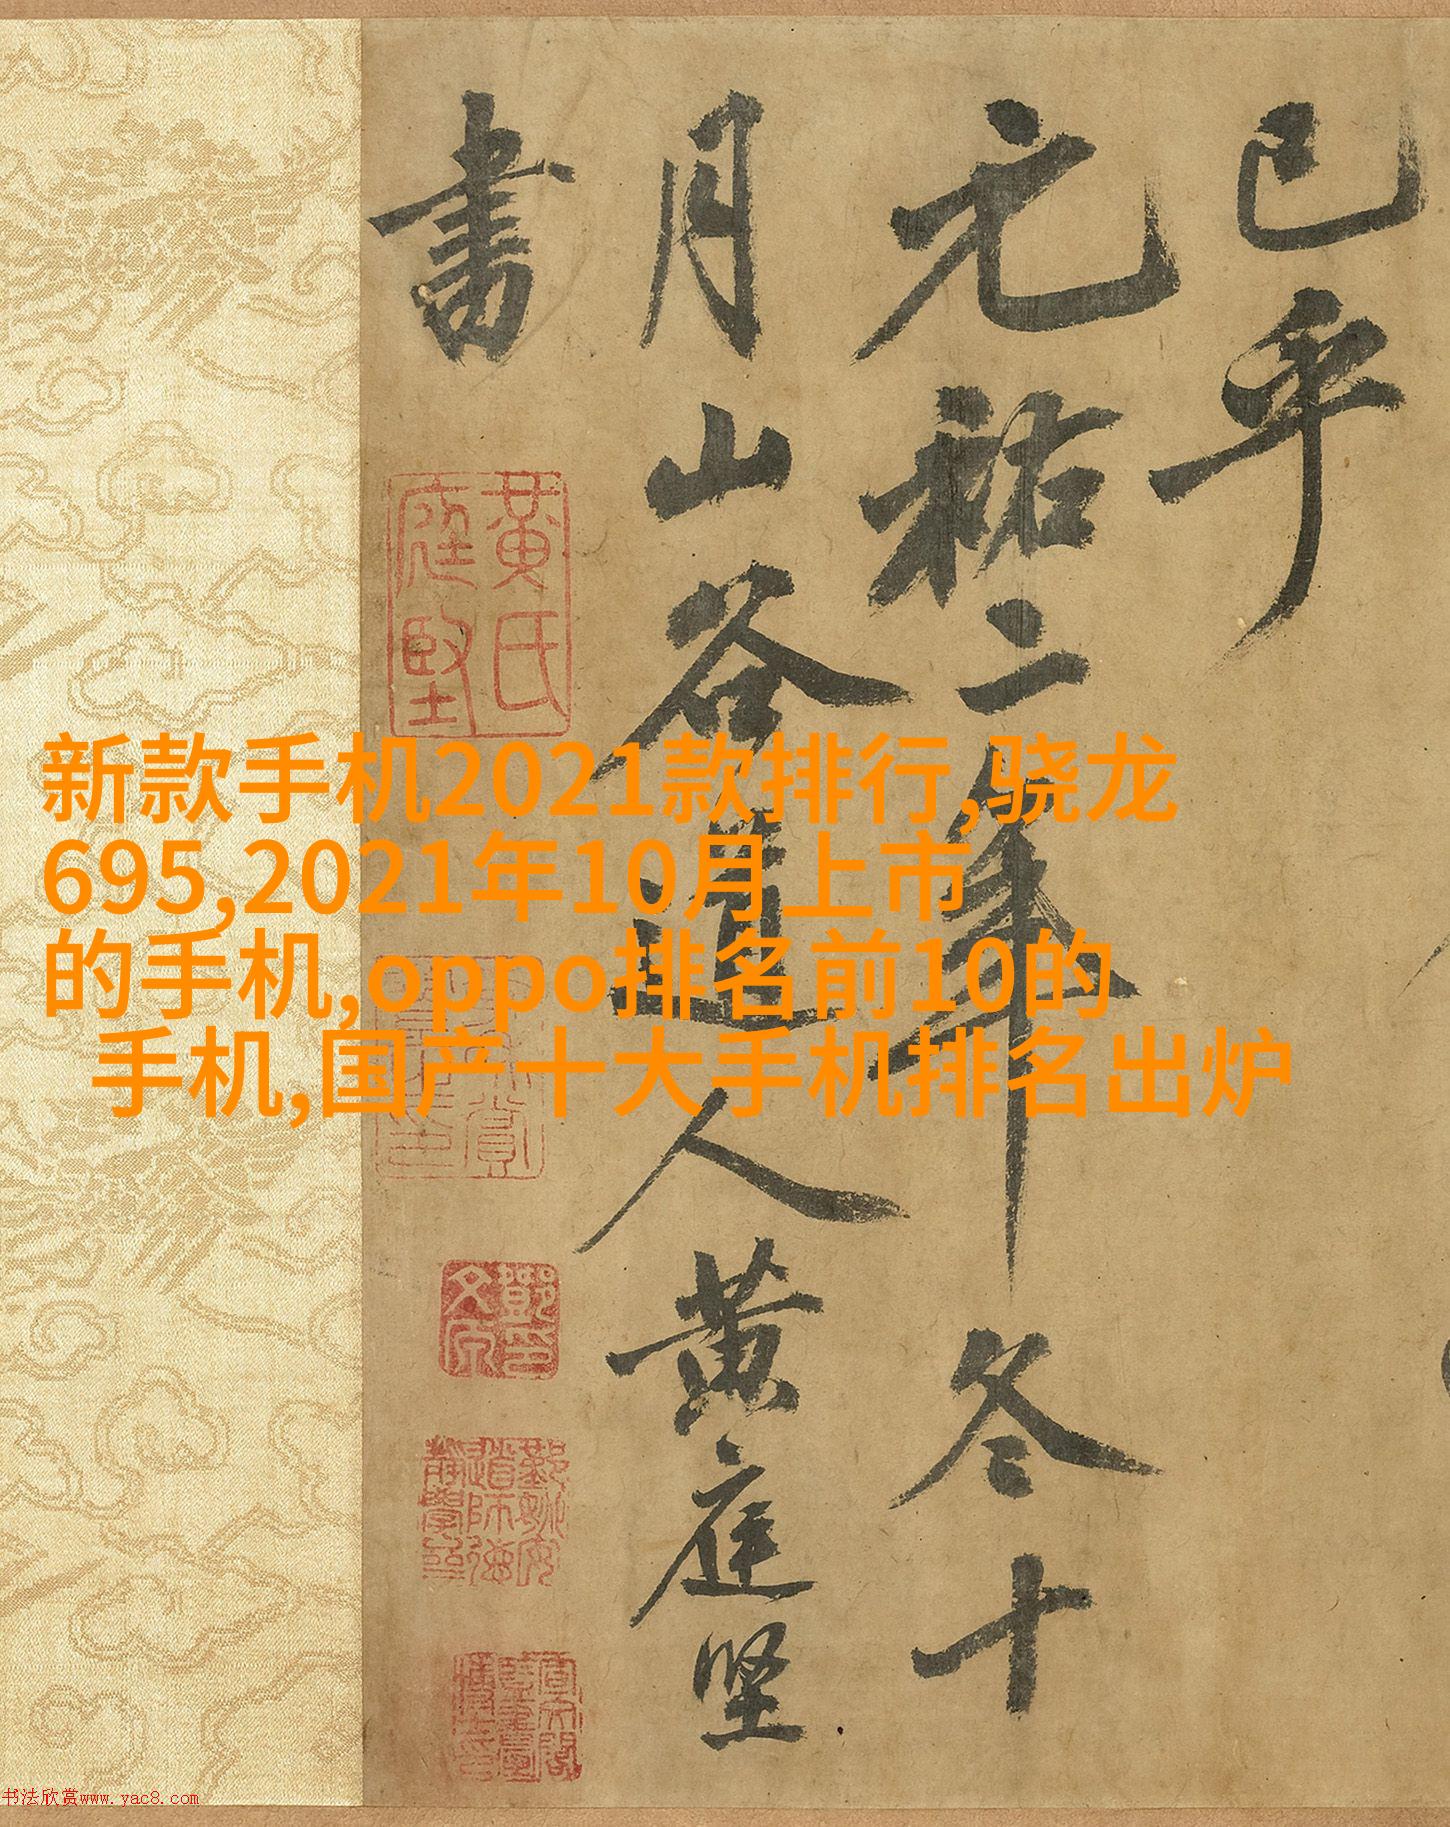 已乎
元祐二年冬十
月山谷道人黄庭坚
書
黄氏
庭堅
新款手机2021款排行,骁龙
695,2021年10月上市
的手机,oppo排名前10的
手机,国产十大手机排名出炉
书法欣赏www.yac8.com